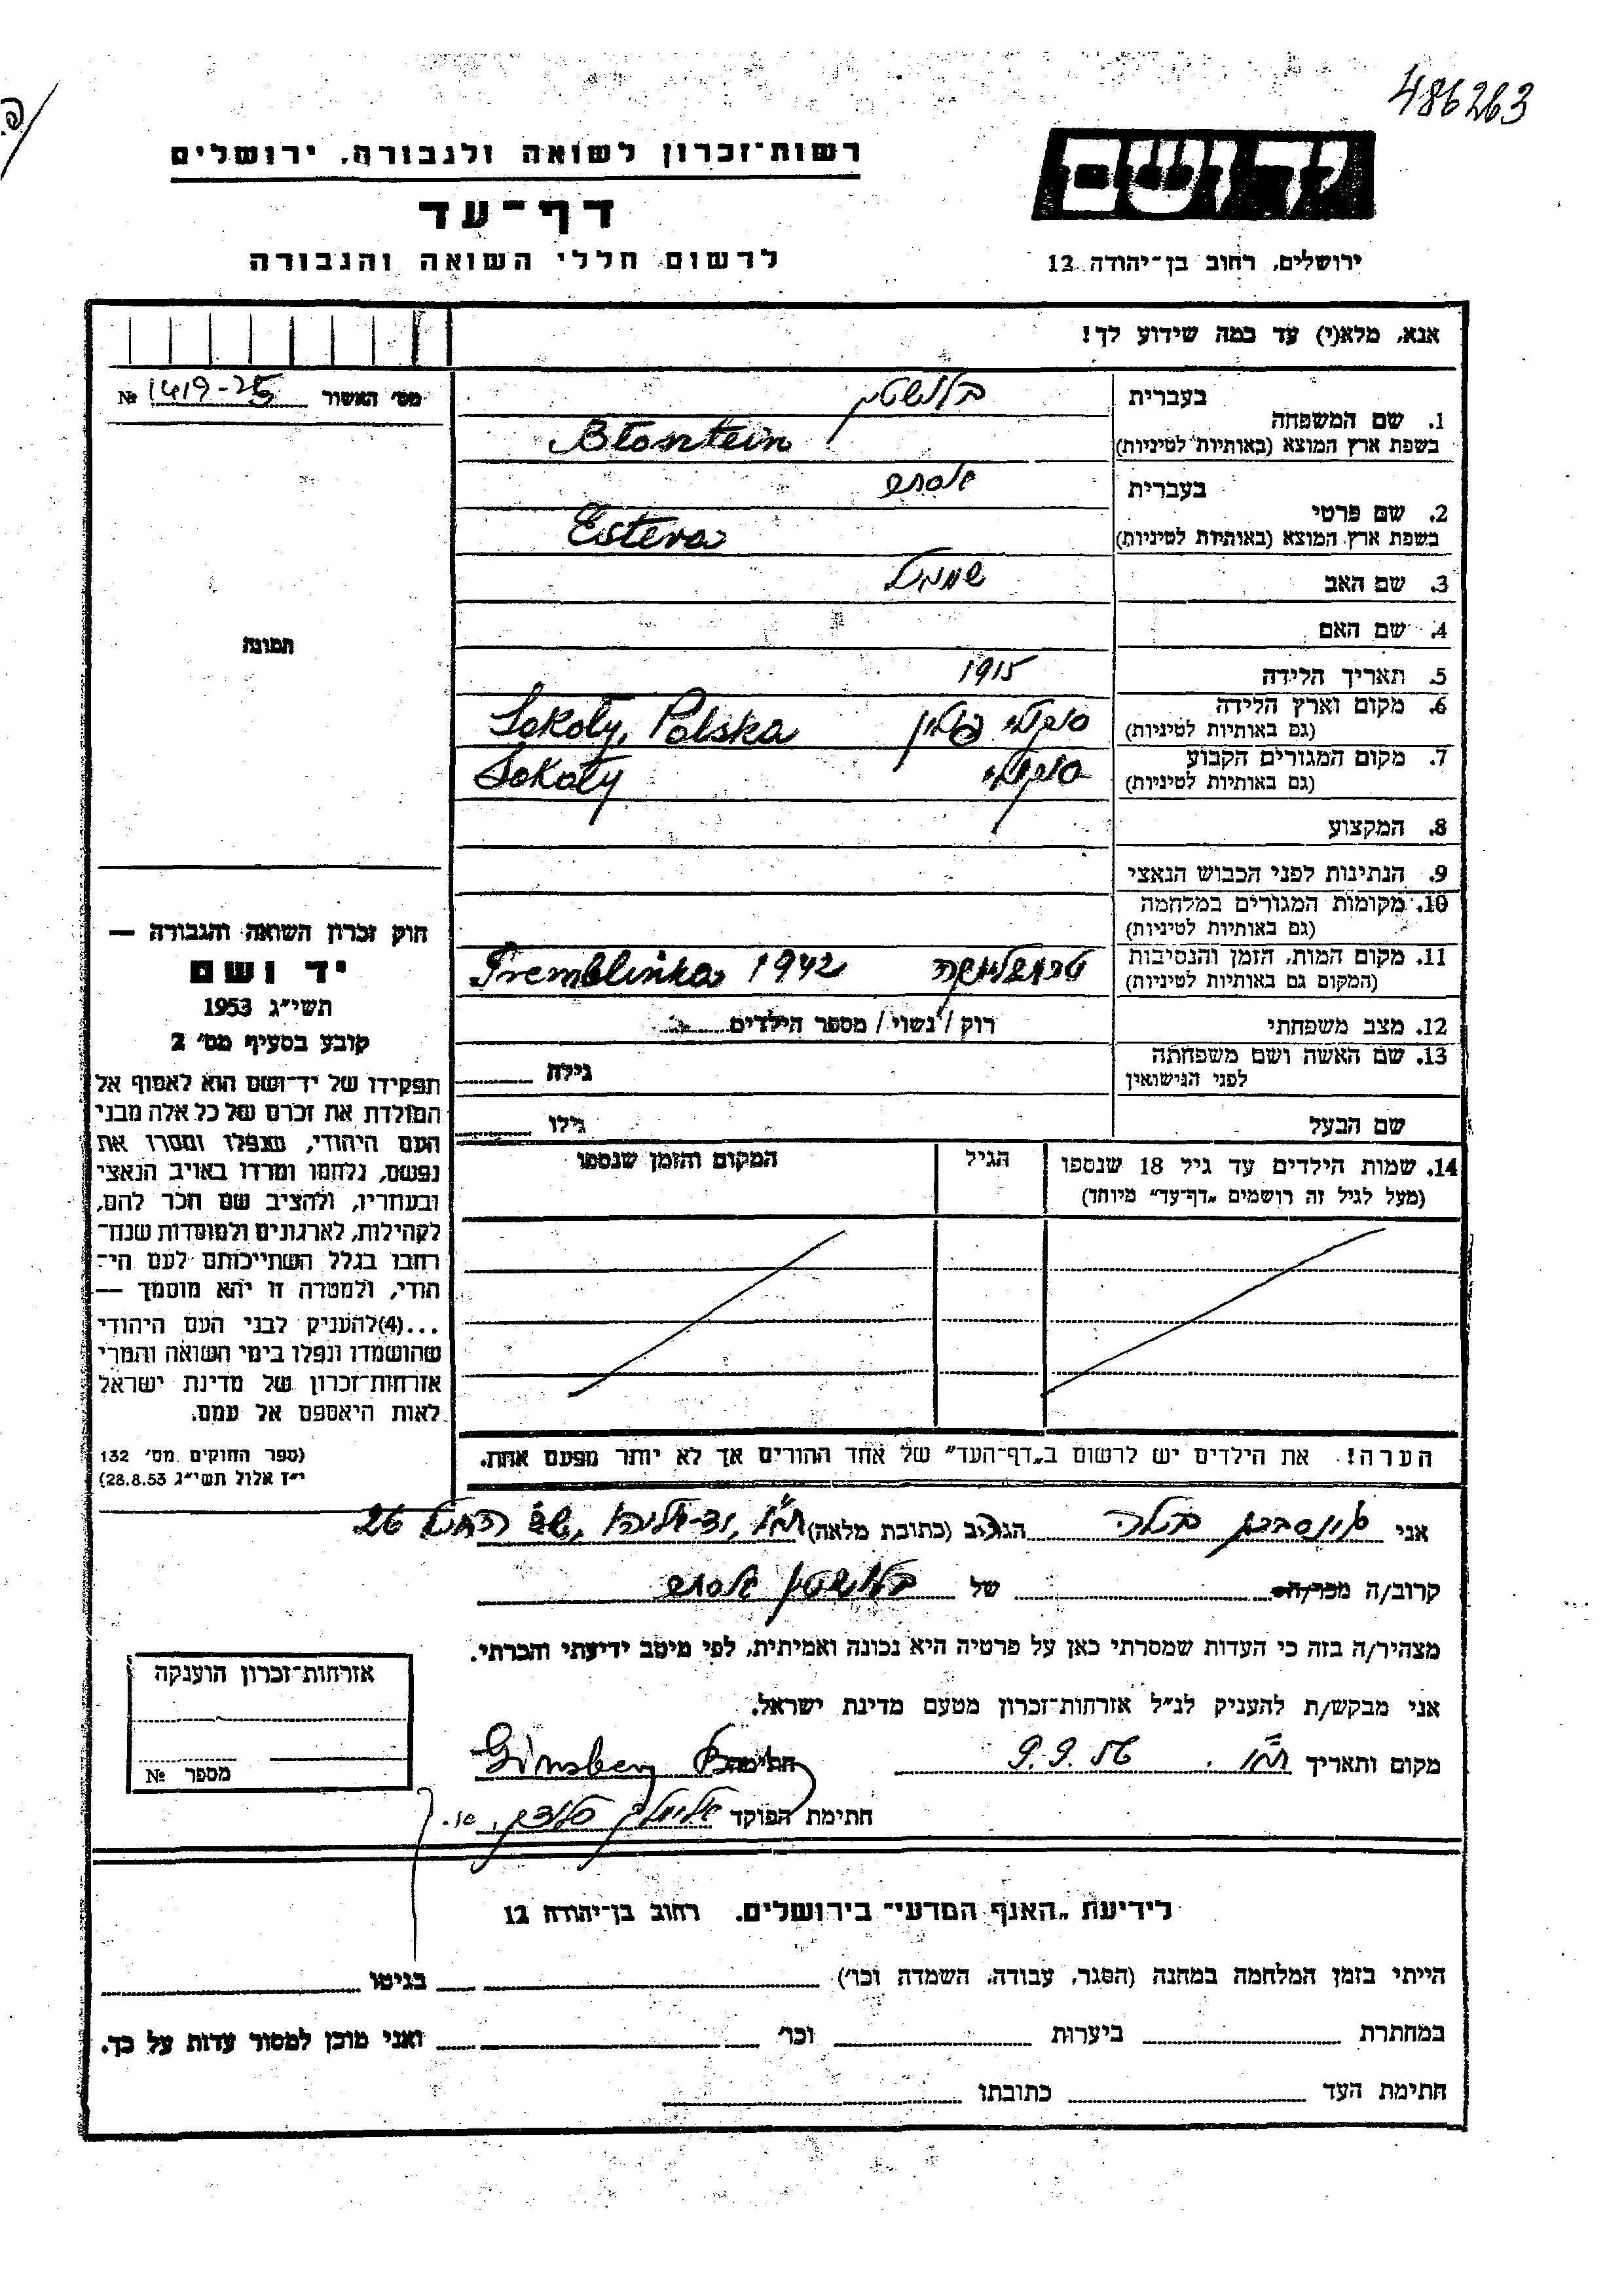 486263
רשות־זכרון לשואה ולגבורה, ירושלים
דף־עד
לרשום חללי השואה והגבורה
יד ושם
ירושלים, רחוב בן־יהודה 12
אנא, מלא(י) עד כמה שידוע לך!
מס׳ האשור 1419-25 №
בעברית
1. שם המשפחה
בשפת ארץ המוצא (באותיות לטיניות) Błosztein
בעברית אסתר
2. שם פרטי
בשפת ארץ המוצא (באותיות לטיניות) Estera
3. שם האב שמואל
4. שם האם
תמונה
5. תאריך הלידה 1915
6. מקום וארץ הלידה סוקולי פולין Sokoły, Polska
(גם באותיות לטיניות)
7. מקום המגורים הקבוע סוקולי Sokoły
(גם באותיות לטיניות)
8. המקצוע
9. הנתינות לפני הכבוש הנאצי
10. מקומות המגורים במלחמה
(גם באותיות לטיניות)
11. מקום המות, הזמן והנסיבות טרמבלינקה Tremblinka 1942
(המקום גם באותיות לטיניות)
12. מצב משפחתי רוק / נשוי / מספר הילדים
13. שם האשה ושם משפחתה גילה
לפני הנישואין
שם הבעל גילו
14. שמות הילדים עד גיל 18 שנספו הגיל המקום והזמן שנספו
(מעל לגיל זה רושמים „דף־עד״ מיוחד)
הערה! את הילדים יש לרשום ב„דף־העד״ של אחד ההורים אך לא יותר מפעם אחת.
חוק זכרון השואה והגבורה —
יד ושם
תשי״ג 1953
קובע בסעיף מס׳ 2
תפקידו של יד־ושם הוא לאסוף אל
המולדת את זכרם של כל אלה מבני
העם היהודי, שנפלו ומסרו את
נפשם, נלחמו ומרדו באויב הנאצי
ובעוזריו, ולהציב שם וזכר להם,
לקהילות, לארגונים ולמוסדות שנח־
רבו בגלל השתייכותם לעם הי־
הודי, ולמטרה זו יהא מוסמך —
...(4)להעניק לבני העם היהודי
שהושמדו ונפלו בימי השואה והמרי
אזרחות־זכרון של מדינת ישראל
לאות היאספם אל עמם.
(ספר החוקים מס׳ 132
י״ז אלול תשי״ג 28.8.53)
אני הגר/ב (כתובת מלאה) 26
קרוב/ה מכר/ה של אסתר
מצהיר/ה בזה כי העדות שמסרתי כאן על פרטיה היא נכונה ואמיתית, לפי מיטב ידיעתי והכרתי.
אני מבקש/ת להעניק לנ״ל אזרחות־זכרון מטעם מדינת ישראל.
מקום ותאריך 9.9.56 חתימה Ginsberg
חתימת הפוקד
אזרחות־זכרון הוענקה
מספר №
לידיעת „האגף המדעי״ בירושלים. רחוב בן־יהודה 12
הייתי בזמן המלחמה במחנה (הסגר, עבודה, השמדה וכו׳) בגיטו
במחתרת ביערות וכו׳ ואני מוכן למסור עדות על כך.
חתימת העד כתובתו